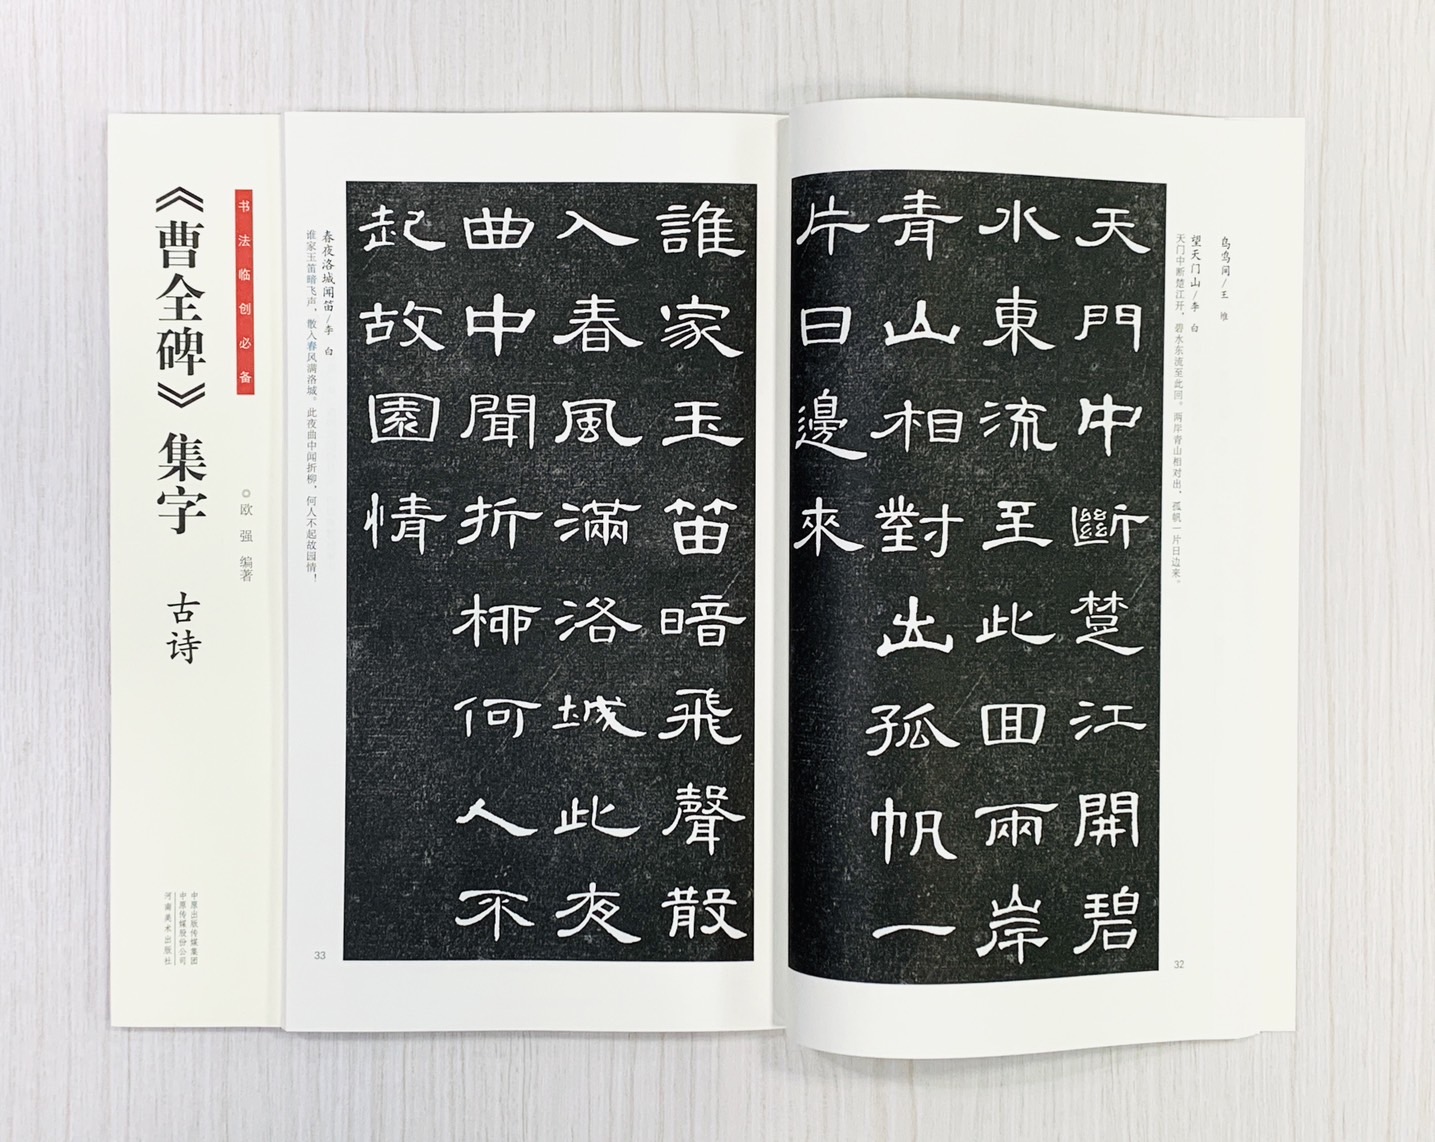 鸟鸣涧/王 维
望天门山/李 白
天门中断楚江开，碧水东流至此回。两岸青山相对出，孤帆一片日边来。
天門中斷楚江開碧
水東流至此回兩岸
青山相對出孤帆一
片日邊來
32
誰家玉笛暗飛聲散
入春風滿洛城此夜
曲中聞折柳何人不
起故園情
春夜洛城闻笛/李 白
谁家玉笛暗飞声，散入春风满洛城。此夜曲中闻折柳，何人不起故园情！
33
书法临创必备
◎欧 强 编著
《曹全碑》集字 古诗
中原出版传媒集团
中原传媒股份公司
河南美术出版社